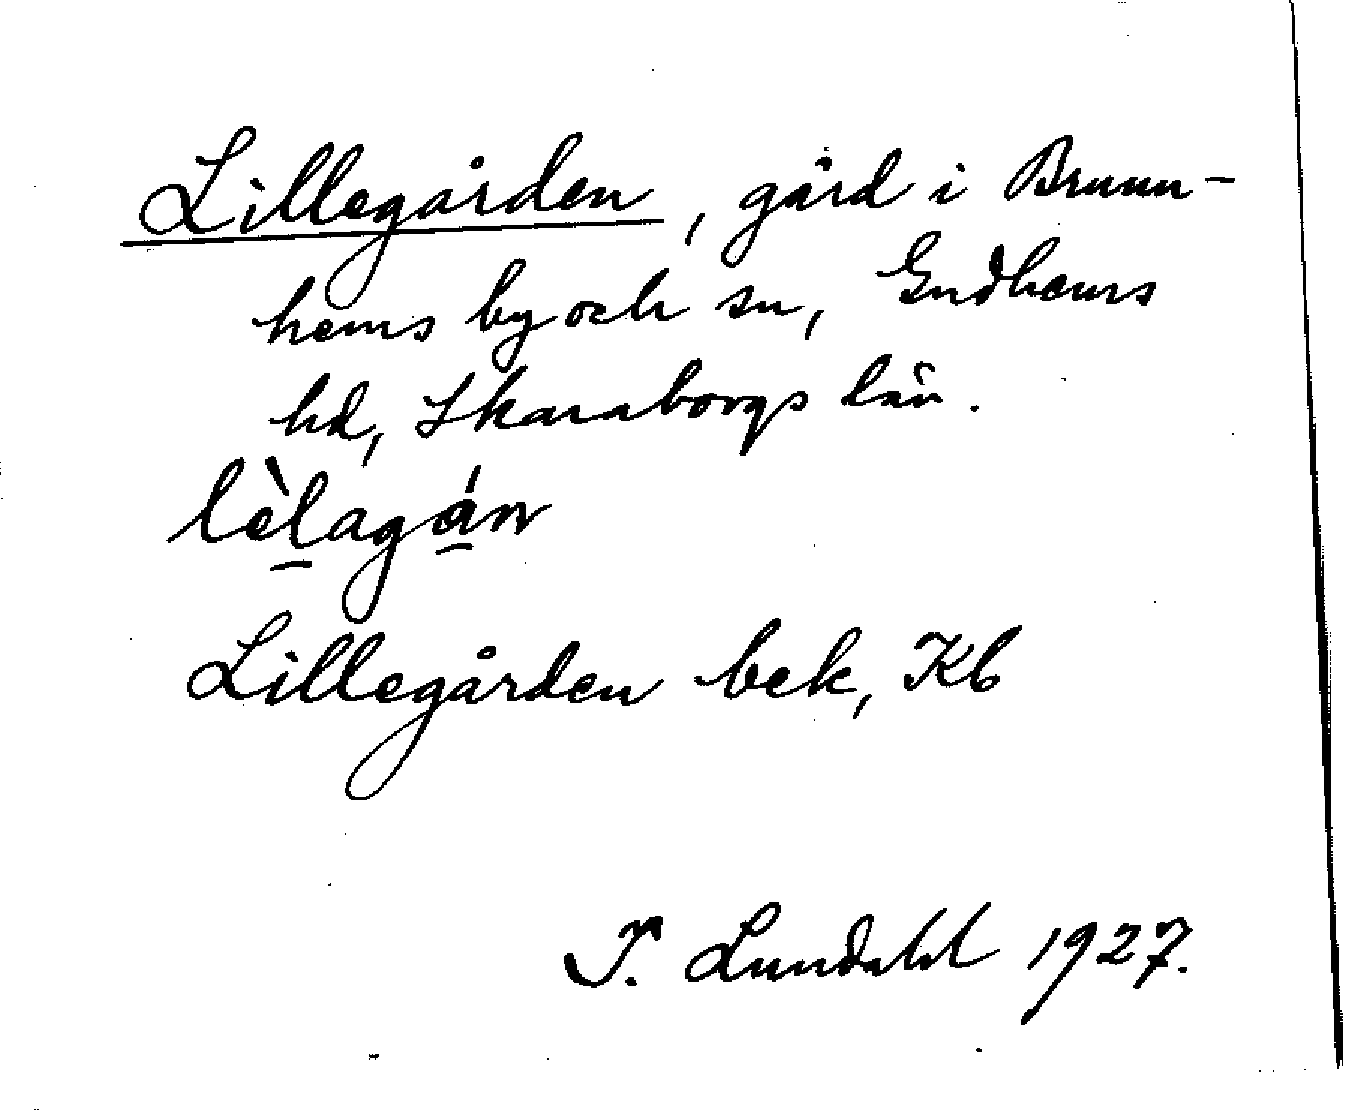 Lillegården, gård i Brunn-
hems by och sn, Gudhems
hd, Skaraborgs län.
lèlagán
Lillegården bek, Kb
I. Lundahl 1927.